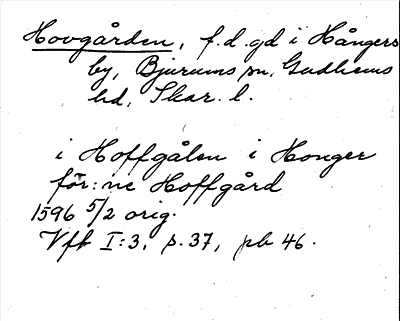 Hovgården, f.d. gd i Hångers
by, Bjurums sn, Gudhems
hd, Skar. l.
i Hoffgålen i Honger
för: ne Hoffgård
1596 5/2 orig.
Vft I:3, p. 37, pb 46.